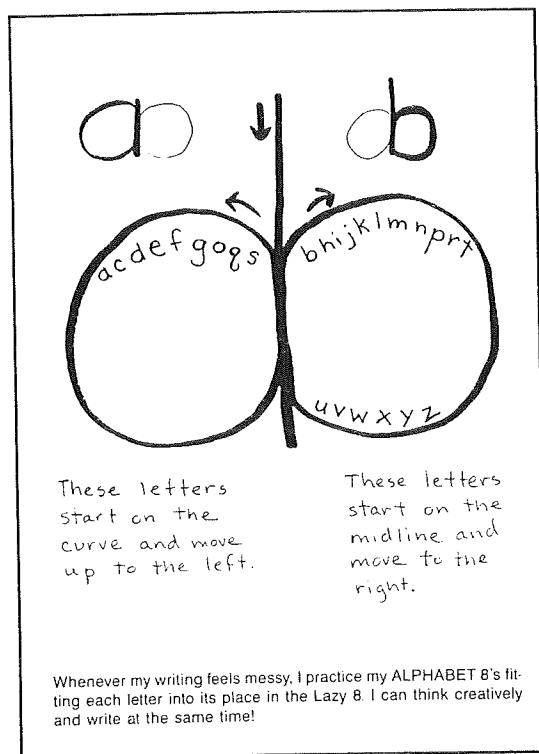 a
b
acdefgoqs
bhijklmnprt
uvwxyz
These letters
start on the
curve and move
up to the left.
These letters
start on the
midline and
move to the
right.
Whenever my writing feels messy, I practice my ALPHABET 8's fit-
ting each letter into its place in the Lazy 8. I can think creatively
and write at the same time!